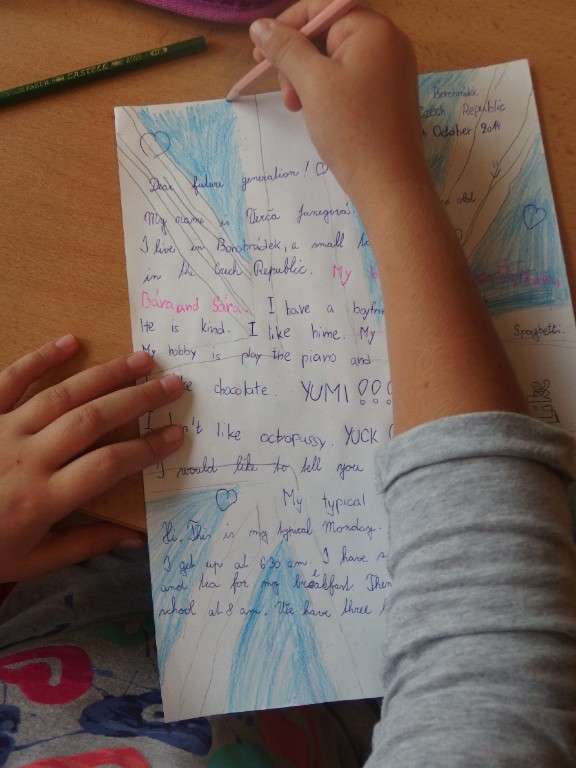 Borohrádek
Czech Republic
October 2014
Dear future generation!
My name is Terča
old
I live in Borohrádek, a small
in the Czech Republic. My
Bára and Sára. I have a boyfri
He is kind. I like hime. My Spaghetti.
My hobby is play the piano and
chocolate. YUMI!!! Like
I n't like octopussy. YUCK
I would like to tell you
My typical
Hi. This is my typical Monday.
I get up at 630 am. I have
and tea for my breakfast. Then
school at 8 am. We have three
CASTELL